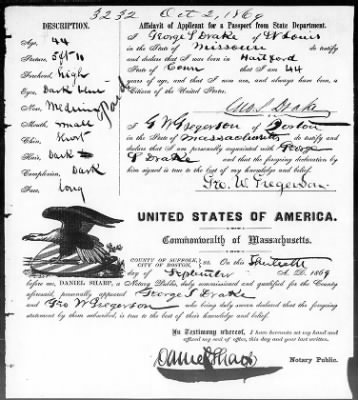 3232 Oct 2, 1869
DESCRIPTION.
Age, 44
Stature, 5 ft 10
Forehead, high
Eyes, Dark blue
Nose, Medium
Mouth, small
Chin, short
Hair, dark
Complexion, dark
Face, long
Affidavit of Applicant for a Passport from State Department.
I George S Drake of St Louis
in the State of Missouri do testify
and declare that I was born in Hartford
State of Conn that I am 44
years of age, and that I am now, and always have been, a
Citizen of the United States.
Geo S Drake
I G W Gregerson of Boston
in the State of Massachusetts do testify and
declare that I am personally acquainted with George
S Drake and that the foregoing declaration by
him signed is true to the best of my knowledge and belief.
Geo. W. Gregerson.
UNITED STATES OF AMERICA.
Commonwealth of Massachusetts.
COUNTY OF SUFFOLK,
CITY OF BOSTON, } ss. On this Thirtieth
day of September A. D. 1869
before me, DANIEL SHARP, a Notary Public, duly commissioned and qualified for the County
aforesaid, personally appeared George S Drake
and Geo W Gregerson who being duly sworn declared that the foregoing
statement by them subscribed, is true to the best of their knowledge and belief.
In Testimony whereof, I have hereunto set my hand and
affixed my seal of office, this day and year last written.
Daniel Sharp
Notary Public.